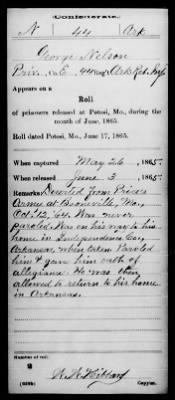 Confederate.
N 44 Ark
George Nelson
Priv., Co. C, 44 Reg't Ark. Ret. Inf.
Appears on a
Roll
of prisoners released at Potosi, Mo., during the
month of June, 1865.
Roll dated Potosi, Mo., June 17, 1865.
When captured May 26, 1865
When released June 3, 1865
Remarks: Deserted from Price's
Army at Booneville, Mo.,
Oct. 12, '64. Was never
paroled. Was on his way to his
home in Independence Co.,
Arkansas, when taken. Paroled
him & gave him oath of
allegiance. He was then
allowed to return to his home
in Arkansas.
Number of roll:
Copyist.